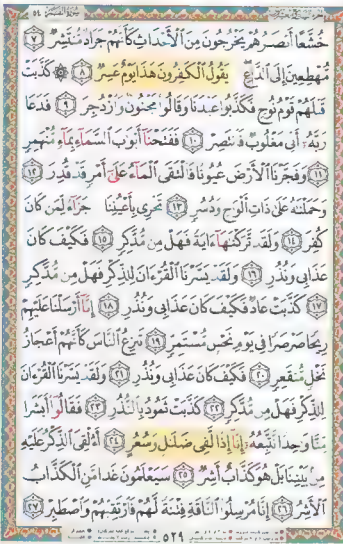 سُورَةُ القَمَرِ ٥٤
خُشَّعًا أَبْصَٰرُهُمْ يَخْرُجُونَ مِنَ ٱلْأَجْدَاثِ كَأَنَّهُمْ جَرَادٌ مُّنتَشِرٌ ٧
مُّهْطِعِينَ إِلَى ٱلدَّاعِ يَقُولُ ٱلْكَٰفِرُونَ هَٰذَا يَوْمٌ عَسِرٌ ٨ ۞ كَذَّبَتْ
قَبْلَهُمْ قَوْمُ نُوحٍ فَكَذَّبُوا۟ عَبْدَنَا وَقَالُوا۟ مَجْنُونٌ وَٱزْدُجِرَ ٩ فَدَعَا
رَبَّهُۥٓ أَنِّى مَغْلُوبٌ فَٱنتَصِرْ ١٠ فَفَتَحْنَآ أَبْوَٰبَ ٱلسَّمَآءِ بِمَآءٍ مُّنْهَمِرٍ
١١ وَفَجَّرْنَا ٱلْأَرْضَ عُيُونًا فَٱلْتَقَى ٱلْمَآءُ عَلَىٰٓ أَمْرٍ قَدْ قُدِرَ ١٢
وَحَمَلْنَٰهُ عَلَىٰ ذَاتِ أَلْوَٰحٍ وَدُسُرٍ ١٣ تَجْرِى بِأَعْيُنِنَا جَزَآءً لِّمَن كَانَ
كُفِرَ ١٤ وَلَقَد تَّرَكْنَٰهَآ ءَايَةً فَهَلْ مِن مُّدَّكِرٍ ١٥ فَكَيْفَ كَانَ
عَذَابِى وَنُذُرِ ١٦ وَلَقَدْ يَسَّرْنَا ٱلْقُرْءَانَ لِلذِّكْرِ فَهَلْ مِن مُّدَّكِرٍ
١٧ كَذَّبَتْ عَادٌ فَكَيْفَ كَانَ عَذَابِى وَنُذُرِ ١٨ إِنَّآ أَرْسَلْنَا عَلَيْهِمْ
رِيحًا صَرْصَرًا فِى يَوْمِ نَحْسٍ مُّسْتَمِرٍّ ١٩ تَنزِعُ ٱلنَّاسَ كَأَنَّهُمْ أَعْجَازُ
نَخْلٍ مُّنقَعِرٍ ٢٠ فَكَيْفَ كَانَ عَذَابِى وَنُذُرِ ٢١ وَلَقَدْ يَسَّرْنَا ٱلْقُرْءَانَ
لِلذِّكْرِ فَهَلْ مِن مُّدَّكِرٍ ٢٢ كَذَّبَتْ ثَمُودُ بِٱلنُّذُرِ ٢٣ فَقَالُوٓا۟ أَبَشَرًا
مِّنَّا وَٰحِدًا نَّتَّبِعُهُۥٓ إِنَّآ إِذًا لَّفِى ضَلَٰلٍ وَسُعُرٍ ٢٤ أَءُلْقِىَ ٱلذِّكْرُ عَلَيْهِ
مِنۢ بَيْنِنَا بَلْ هُوَ كَذَّابٌ أَشِرٌ ٢٥ سَيَعْلَمُونَ غَدًا مَّنِ ٱلْكَذَّابُ
ٱلْأَشِرُ ٢٦ إِنَّا مُرْسِلُوا۟ ٱلنَّاقَةِ فِتْنَةً لَّهُمْ فَٱرْتَقِبْهُمْ وَٱصْطَبِرْ ٢٧
٥٢٩